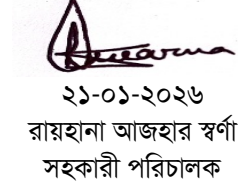 ২১-০১-২০২৬
রায়হানা আজহার স্বর্ণা
সহকারী পরিচালক